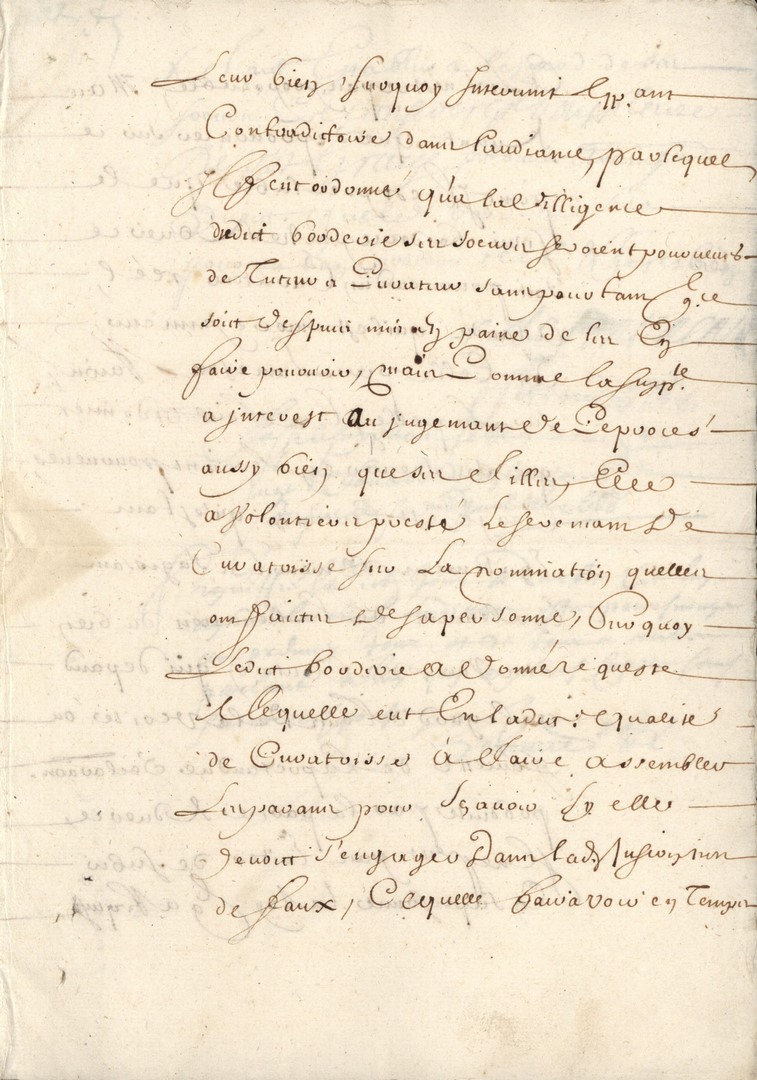 Leur bien, surquoy Intervint app.ant
Contradictoire dans l'audiance, par lequel
Il fut ordonné qu'a la dilligence
dudict bourderie ses soeurs seroient pourveues
de Tuteur a Curateur sans pourtant q.ce
soit despuis mis en paine de les En
faire pourvoir, mais Comme la supp.te
a Interest au jugemant de Ce procés
aussy bien que ses filles, Elle
a volontiers presté le seremant de
Curatrisse sur la nomination quelles
ont faites de sa personne, surquoy
Ledict bourdirie a donné requeste
a lequelle ent En ladite qualité
de Curatrisse a faire assembler
Les parans pour sçavoir sy elle
devoit s'engager dans lad. Inscription
de faux, Cequelle fairavoir en Temps